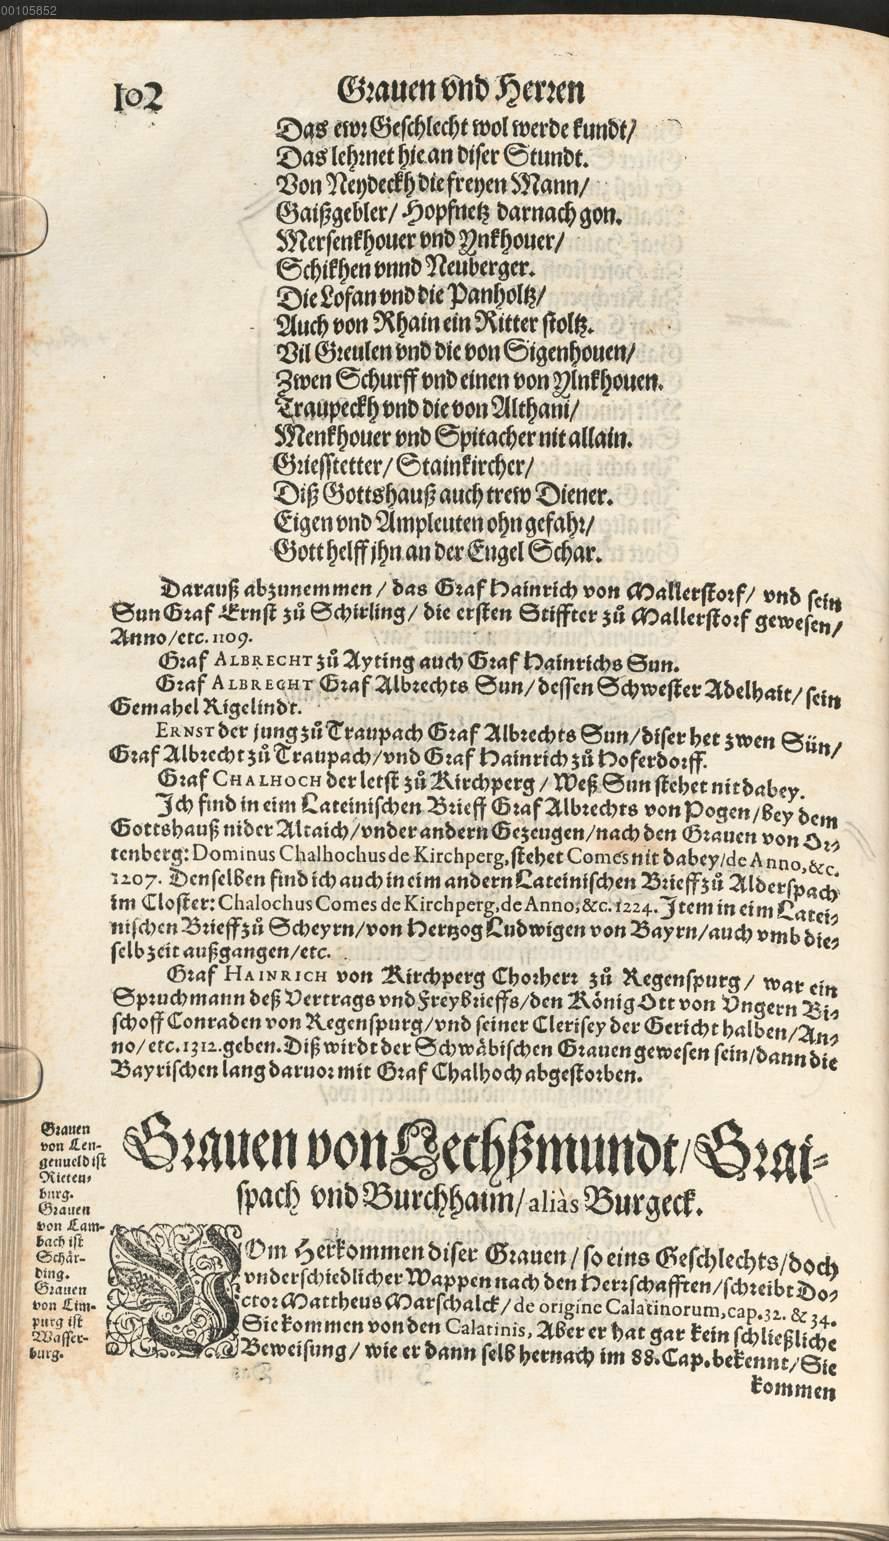 00105852
102
Grauen vnd Herren
Das ewr Geschlecht wol werde kundt/
Das lehrnet hie an diser Stundt.
Von Neydeckh die freyen Mann/
Gaißgebler/ Hopfnetz darnach gon.
Mersenkhouer vnd Ynkhouer/
Schikhen vnnd Neuberger.
Die Lofan vnd die Panholtz/
Auch von Rhain ein Ritter stoltz.
Vil Greulen vnd die von Sigenhouen/
Zwen Schurff vnd einen von Ylnkhouen.
Traupeckh vnd die von Althani/
Menkhouer vnd Spitacher nit allain.
Griesstetter/ Stainkircher/
Diß Gottshauß auch trew Diener.
Eigen vnd Ampleuten ohn gefahr/
Gott helff jhn an der Engel Schar.
Darauß abzunemmen / das Graf Hainrich von Mallerstorf/ vnd sein
Sun Graf Ernst zů Schirling/ die ersten Stiffter zů Mallerstorf gewesen/
Anno/etc. 1109.
Graf ALBRECHT zů Ayting auch Graf Hainrichs Sun.
Graf ALBRECHT Graf Albrechts Sun/ dessen Schwester Adelhait/ sein
Gemahel Rigelindt.
ERNST der jung zů Traupach Graf Albrechts Sun/ diser het zwen Sün/
Graf Albrecht zů Traupach/ vnd Graf Hainrich zů Hoferdorff.
Graf CHALHOCH der letst zů Kirchperg / Weß Sun stehet nit dabey.
Ich find in eim Lateinischen Brieff Graf Albrechts von Pogen/ bey dem
Gottshauß nider Altaich/ vnder andern Gezeugen/ nach den Grauen von Or⸗
tenberg: Dominus Chalhochus de Kirchperg, stehet Comes nit dabey/ de Anno, &c.
1207. Denselben find ich auch in eim andern Lateinischen Brieff zů Alderspach
im Closter: Chalochus Comes de Kirchperg, de Anno, &c. 1224. Item in eim Latei⸗
nischen Brieff zů Scheyrn/ von Hertzog Ludwigen von Bayrn/ auch vmb die⸗
selb zeit außgangen/ etc.
Graf HAINRICH von Kirchperg Chorherr zů Regenspurg/ war ein
Spruchmann deß Vertrags vnd Freybrieffs/ den König Ott von Vngern Bi⸗
schoff Conraden von Regenspurg/ vnd seiner Clerisey der Gericht halben/ An⸗
no/ etc. 1312. geben. Diß wirdt der Schwäbischen Grauen gewesen sein/ dann die
Bayrischen lang daruor mit Graf Chalhoch abgestorben.
Grauen
von Len-
genueld ist
Rieten⸗
burg.
Grauen
von Lam-
bach ist
Schär-
ding.
Grauen
von Lim-
purg ist
Wasser-
burg.
Grauen von Lechßmundt/ Grai⸗
spach vnd Burchhaim/ aliàs Burgeck.
VOm Herkommen diser Grauen / so eins Geschlechts/ doch
vnderschiedlicher Wappen nach den Herrschafften/ schreibt Do⸗
ctor Mattheus Marschalck/ de origine Calatinorum, cap. 32. & 34.
Sie kommen von den Calatinis, Aber er hat gar kein schließliche
Beweisung/ wie er dann selb hernach im 88. Cap. bekennt/ Sie
kommen